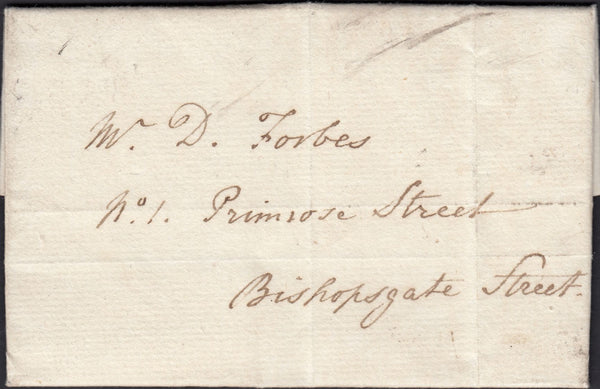 Mr. D. Forbes
No. 1. Primrose Street
Bishopsgate Street.